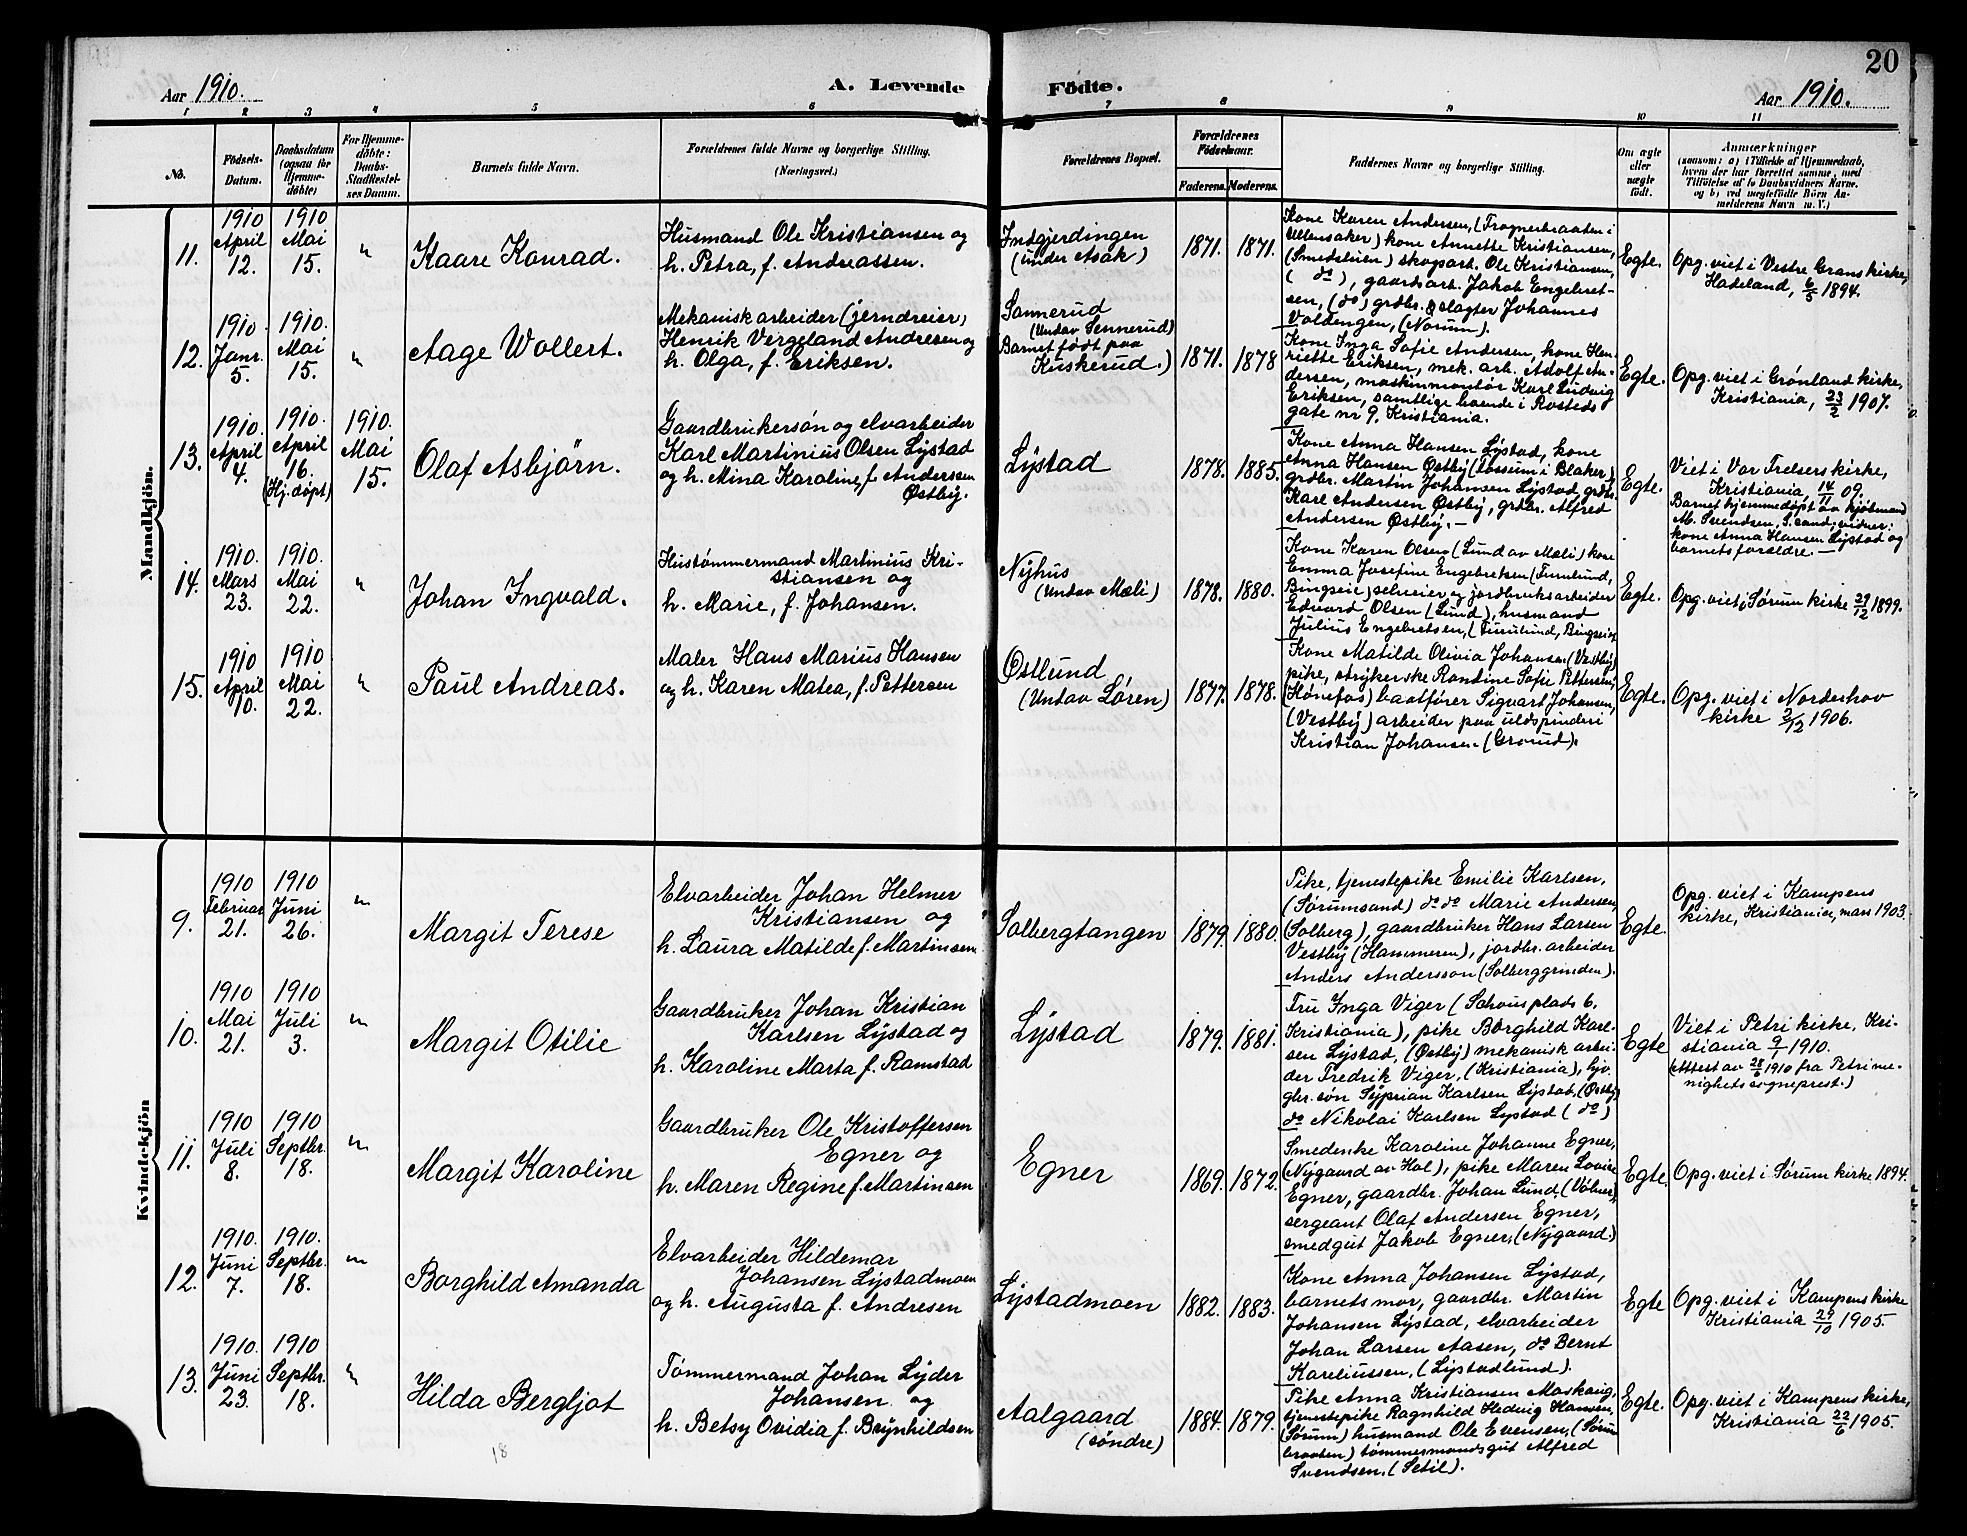 20
Aar 1910.
A. Levende
Födte.
Aar 1910.
1 2 3 4 5 6 7 8 9 10 11
No.
Födsels-
Datum.
Daabsdatum
(ogsaa for
Hjemme-
döbte)
For Hjemme-
döbte:
Daabs-
Stadfæstel-
ses Datum.
Barnets fulde Navn.
Forældrenes fulde Navne og borgerlige Stilling.
(Næringsvei.)
Forældrenes Bopæl.
Forældrenes
Födselsaar.
Faderens. Moderens.
Faddernes Navne og borgerlige Stilling.
Om ægte
eller
uægte
födt.
Anmærkninger
(saasom: a) i Tilfælde af Hjemmedaab,
hvem der har forrettet samme, med
Tilföielse af to Daabsvidners Navne.
og b) ved uægtefödte Börn An-
melderens Navn m. V.)
Mandkjön.
11.
1910
April
12.
1910
Mai
15.
"
Kaare Konrad.
Husmand Ole Kristiansen og
h. Petra, f. Andreassen.
Indgjerdingen
(under Asak)
1871. 1871.
Kone Karen Andersen, (Trognerbraaten i
Ullensaker) kone Annette Kristiansen,
(Smedsleien) skogsarb. Ole Kristiansen,
( do ), gaardsarb. Jakob Engebret-
sen, (do) grdbr. slagter Johannes
Voldengen, (Norum).
Egte.
Opg. viet i Vestre Grans kirke,
Hadeland, 6/5 1894.
12.
1910.
Janr.
5.
1910.
Mai
15.
"
Aage Wollert.
Mekanisk arbeider (jerndreier)
Henrik Vergeland Andresen og
h. Olga, f. Eriksen.
Sannerud
(Undav Sennerud)
Barnet født paa
Kuskerud.)
1871. 1878
Kone Inga Sofie Andersen, kone Hen-
riette Eriksen, mek. arb. Adolf An-
dersen, maskinmontör Karl Ludvig
Eriksen, samtlige boende i Rosteds
gate nr 9, Kristiania.
Egte.
Opg. viet i Grønland kirke,
Kristiania, 23/2 1907.
13.
1910.
April
4.
1910.
April
16.
(Hj.døpt)
1910.
Mai
15.
Olaf Asbjörn.
Gaardbrukersøn og elvarbeider
Karl Martinius Olsen Lystad
og h. Mina Karoline, f. Anderssen
Østby.
Lystad
1878. 1885.
Kone Anna Hansen Lystad, kone
Anna Hansen Østby (Fossum i Blaker,)
grdbr. Martin Johansen Lystad, grdbr.
Karl Andersen Østby, grdbr. Alfred
Andersen Østby. —
Egte.
Viet i Vor Frelsers kirke,
Kristiania, 14/11 09.
Barnet hjemmedøpt av kjøbmand
M. Svendsen, S. sand; vidner:
kone Anna Hansen Lystad og
barnets forældre. —
14.
1910.
Mars
23.
1910.
Mai
22.
"
Johan Ingvald.
Hustømmermand Martinius Kri-
stiansen og
h. Marie, f. Johansen.
Nyhus
(Undav Mæli)
1878. 1880.
Kone Karen Olsen (Lund av Mæli) kone
Emma Josefine Engebretsen (Furulund,
Bingseie) selveier og jordbruksarbeider
Edvard Olsen (Lund), husmand
Julius Engebretsen, (Furulund, Bingseie)
Egte.
Opg. viet i Sørum kirke 29/12 1899.
15.
1910
April
10.
1910
Mai
22.
"
Paul Andreas.
Maler Hans Marius Hansen
og h. Karen Matea, f. Pettersen
Østlund
(Undav Løren)
1877. 1878.
Kone Matilde Olivia Johansen (Vestby)
pike, strykerske Randine Sofie Pettersen,
(Hønefos) baatfører Sigvart Johansen,
(Vestby) arbeider paa uldspinderi
Kristian Johansen. (Grorud).
Egte.
Opg. viet i Norderhov
kirke 2/12 1906.
Kvindekjön
9.
1910
Februar
21.
1910
Juni
26.
"
Margit Terese
Elvarbeider Johan Helmer
Kristiansen og
h. Laura Matilde f. Martinsen
Solbergtangen
1879. 1880.
Pike, tjenestepike Emilie Karlsen,
(Sørumsand) do do Marie Andersen,
(Solberg), gaardbruker Hans Larsen
Vestby (Hammeren), jordbr. arbeider
Anders Andersson (Solberggrinden).
Egte.
Opg. viet i Kampens
kirke, Kristiania, mars 1903.
10.
1910
Mai
21.
1910
Juli
3.
"
Margit Otilie
Gaardbruker Johan Kristian
Karlsen Lystad og
h. Karoline Marta f. Ramstad
Lystad
1879. 1881.
Fru Inga Viger (Schousplads 6,
Kristiania), pike Borghild Karl-
sen Lystad, (Østby) mekanisk arbei-
der Fredrik Viger, (Kristiania), hjv.
gbr. søn Syprian Karlsen Lystad, (Østby)
do Nikolai Karlsen Lystad ( do )
Egte
Viet i Petri kirke, Kri-
stiania 9/1 1910.
(Attest av 28/6 1910 fra Petri me-
nighets sogneprest.)
11.
1910
Juli
8.
1910
Septbr.
18.
"
Margit Karoline
Gaardbruker Ole Kristoffersen
Egner og
h. Maren Regine f. Martinsen
Egner
1869. 1872.
Smedenke Karoline Johanne Egner,
(Nygaard av Hol), pike Maren Lovise
Egner, gaardbr. Johan Lund, (Vølner)
sergeant Olaf Andersen Egner,
smedgut Jakob Egner, (Nygaard)
Egte.
Opg. viet i Sørum kirke 1894.
12.
1910.
Juni
7.
1910.
Septbr.
18.
"
Borghild Amanda
Elvarbeider Hildemar
Johansen Lystadmoen
og h. Augusta f. Andresen
Lystadmoen
1882. 1883.
Kone Anna Johansen Lystad,
barnets mor, gaardbr. Martin
Johansen Lystad, elvarbeider
Johan Larsen Aasen, do Bernt
Kareliussen, (Lystadlund).
Egte
Opg. viet i Kampens kirke
Kristiania 29/10 1905.
13.
1910.
Juni
23.
1910
Septbr.
18.
"
Hilda Bergljot
Tømmermand Johan Lyder
Johansen og
h. Betsy Ovidia f. Brynhildsen
Aalgaard
(søndre)
1884. 1879.
Pike Anna Kristiansen Moskaug,
tjenestepike Ragnhild Hedvig Hansen,
(Sørum) husmand Ole Evensen, (Sørum
braaten) tømmermandsgut Alfred
Svendsen, (Setil).
Egte.
Opg. viet i Kampens kirke,
Kristiania 22/6 1905.
18